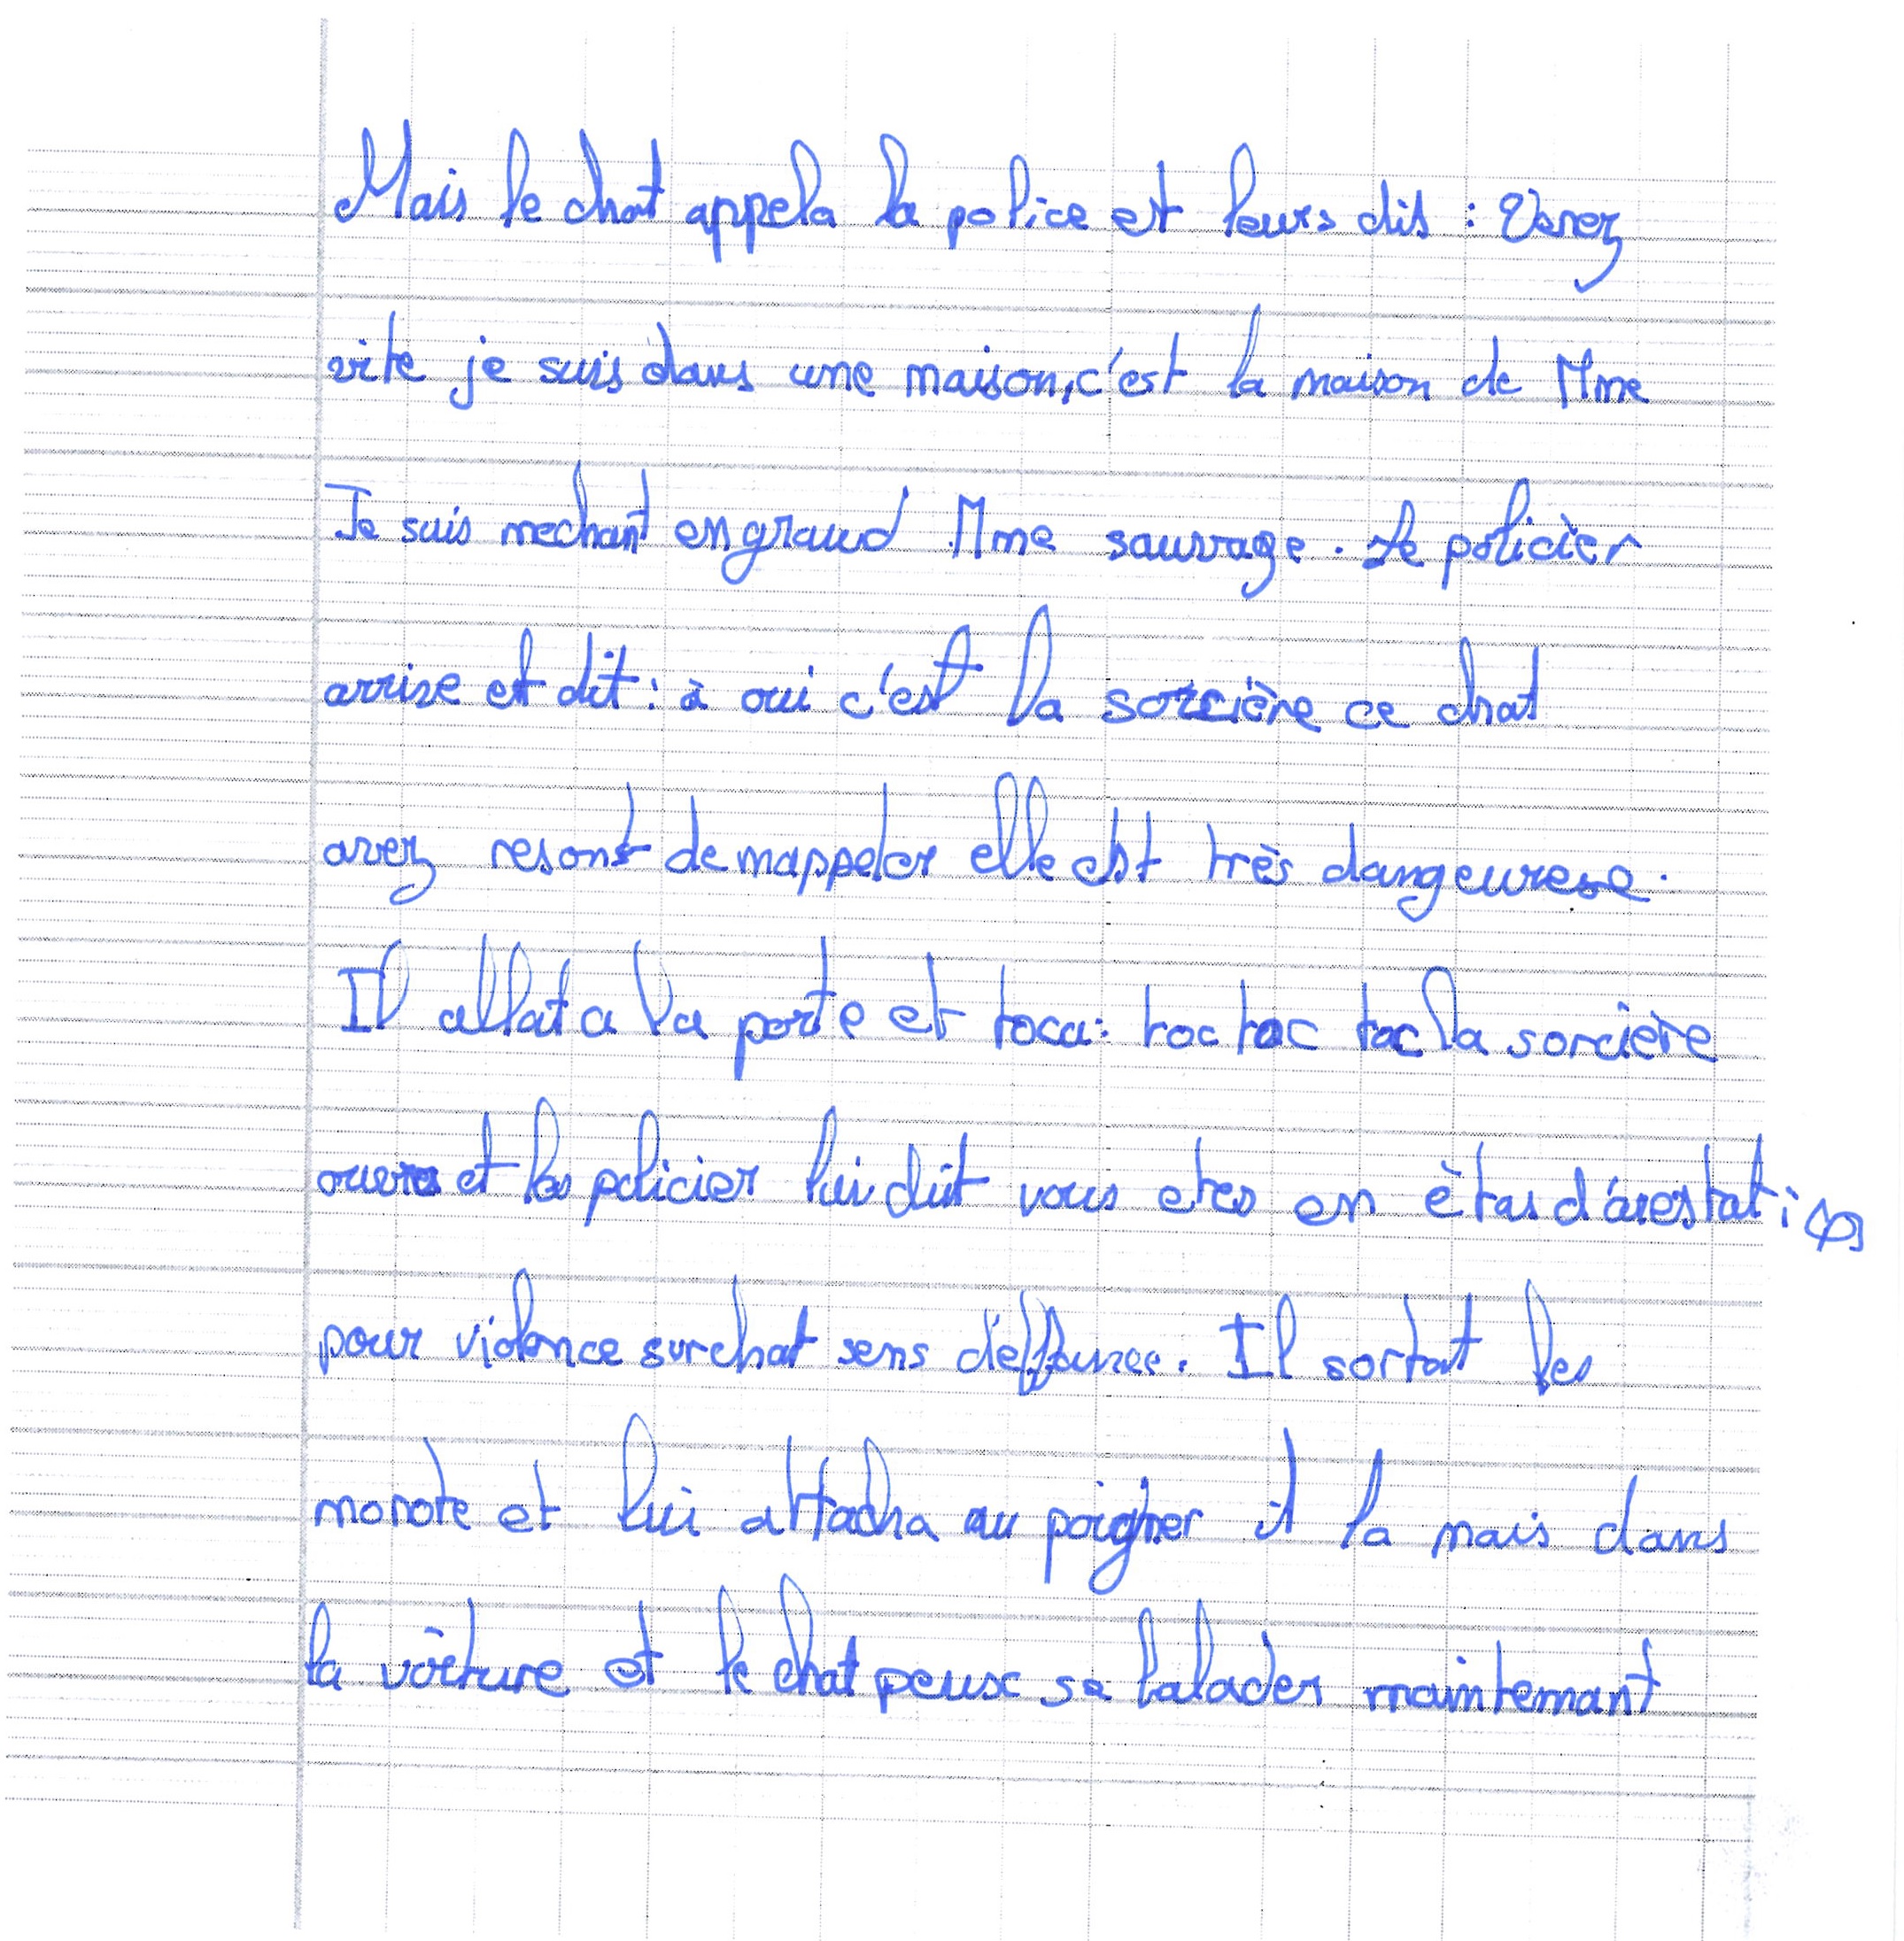 Mais le chat appela la police et leurs dis : Venez
vite je suis dans une maison, c'est la maison de Mme
Je suis mechant en grand Mme sauvage. Le policièr
arrive et dit : à oui c'est la sorcière ce chat
avez resont de mappeler elle est très dangeurese.
Il allat a la porte et toca: toc toc toc la sorcière
ouvra et les policier lui dit vous etes en ètas d'arestation
pour violence sur chat sens déffance. Il sortat les
monote et lui attacha au poigner il la mais dans
la voiture et le chat peux se balader maintenant